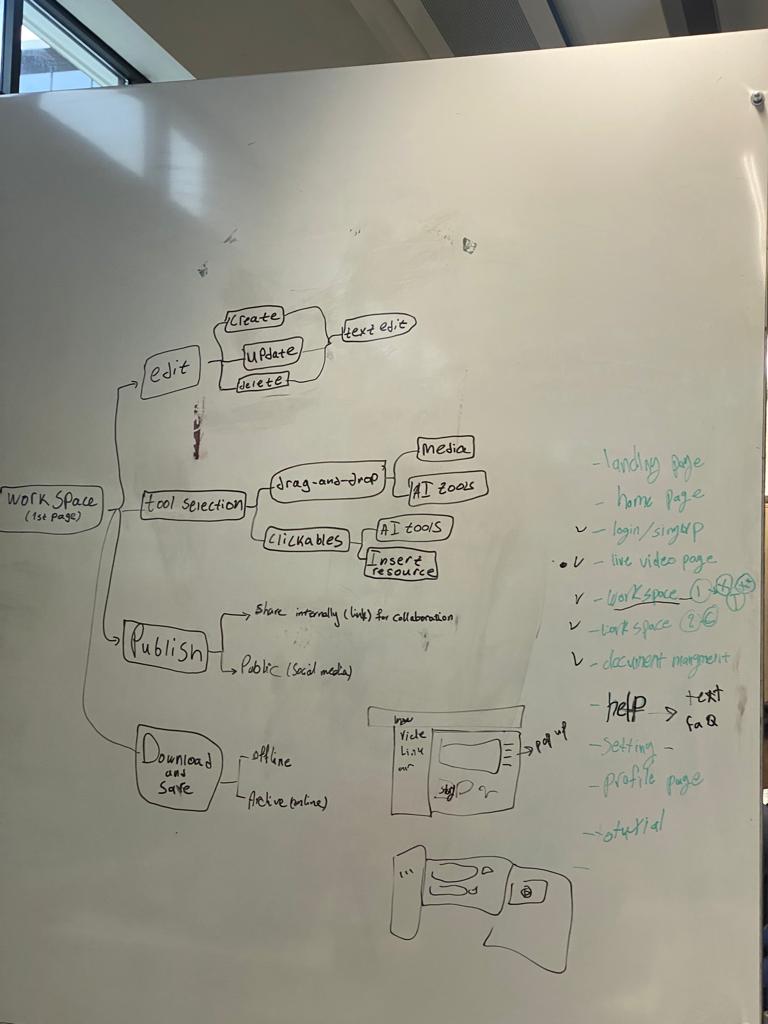 Work Space
(1st page)
edit
Create
Update
delete
text edit
tool selection
drag-and-drop
Media
AI tools
Clickables
AI tools
Insert
resource
Publish
Share internally (link) for collaboration
Public (Social media)
Download
and
Save
offline
Archive (online)
Link
pop up
- landing page
- home page
- login/singup
- live video page
- workspace 1
- workspace 2
- document margment
- help → text
FaQ
- setting -
- profile page
- oturial